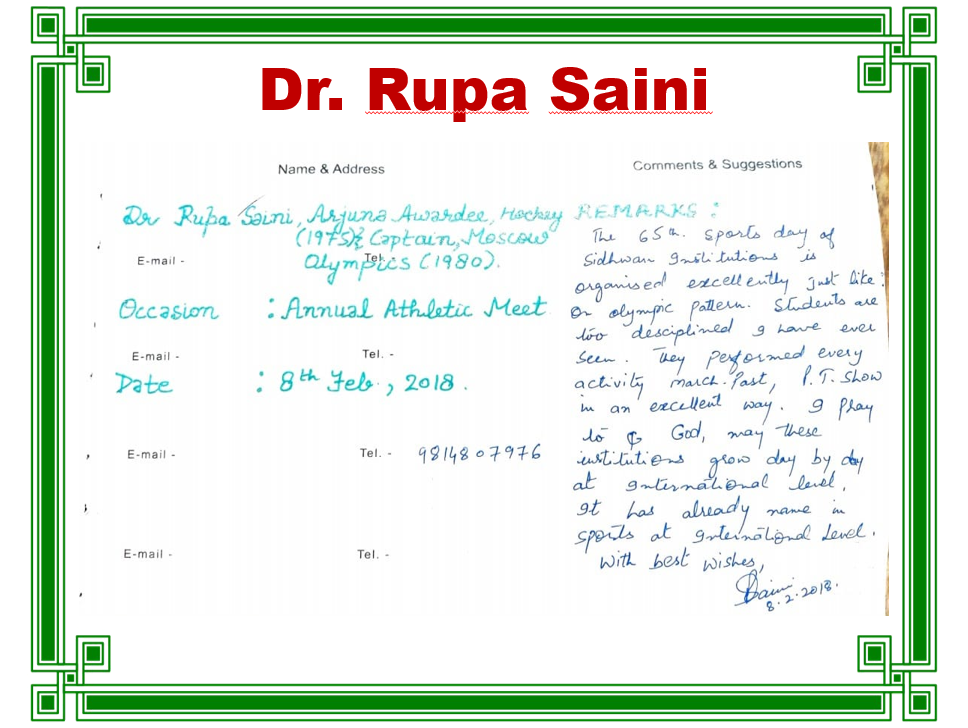 Dr. Rupa Saini
Name & Address
Dr Rupa Saini, Arjuna Awardee, Hockey
(1975) & Captain, Moscow
E-mail - Tel. -
Olympics (1980).
Occasion : Annual Athletic Meet
E-mail - Tel. -
Date : 8th Feb., 2018.
E-mail - Tel. - 9814807976
E-mail - Tel. -
Comments & Suggestions
REMARKS :
The 65th sports day of
Sidhwan Institutions is
organised excellently just like
on olympic pattern. Students are
too desciplined I have ever
seen. They performed every
activity march-Past, P.T. Show
in an excellent way. I Pray
to God, may these
institutions grow day by day
at International level.
It has already name in
sports at International Level.
With best wishes,
Saini
8.2.2018.